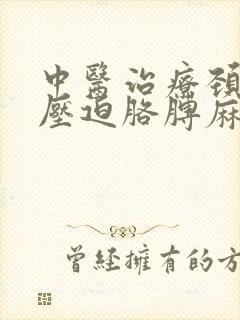 中醫治療頸
壓迫胳膊麻
曾經擁有的方